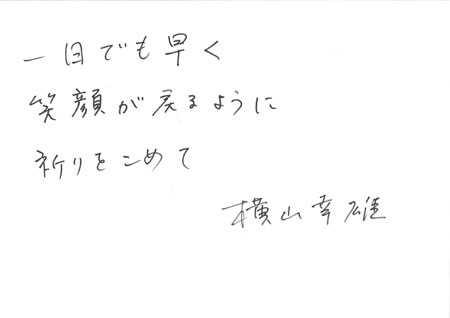 一日でも早く
笑顔が戻るように
祈りをこめて
横山幸雄